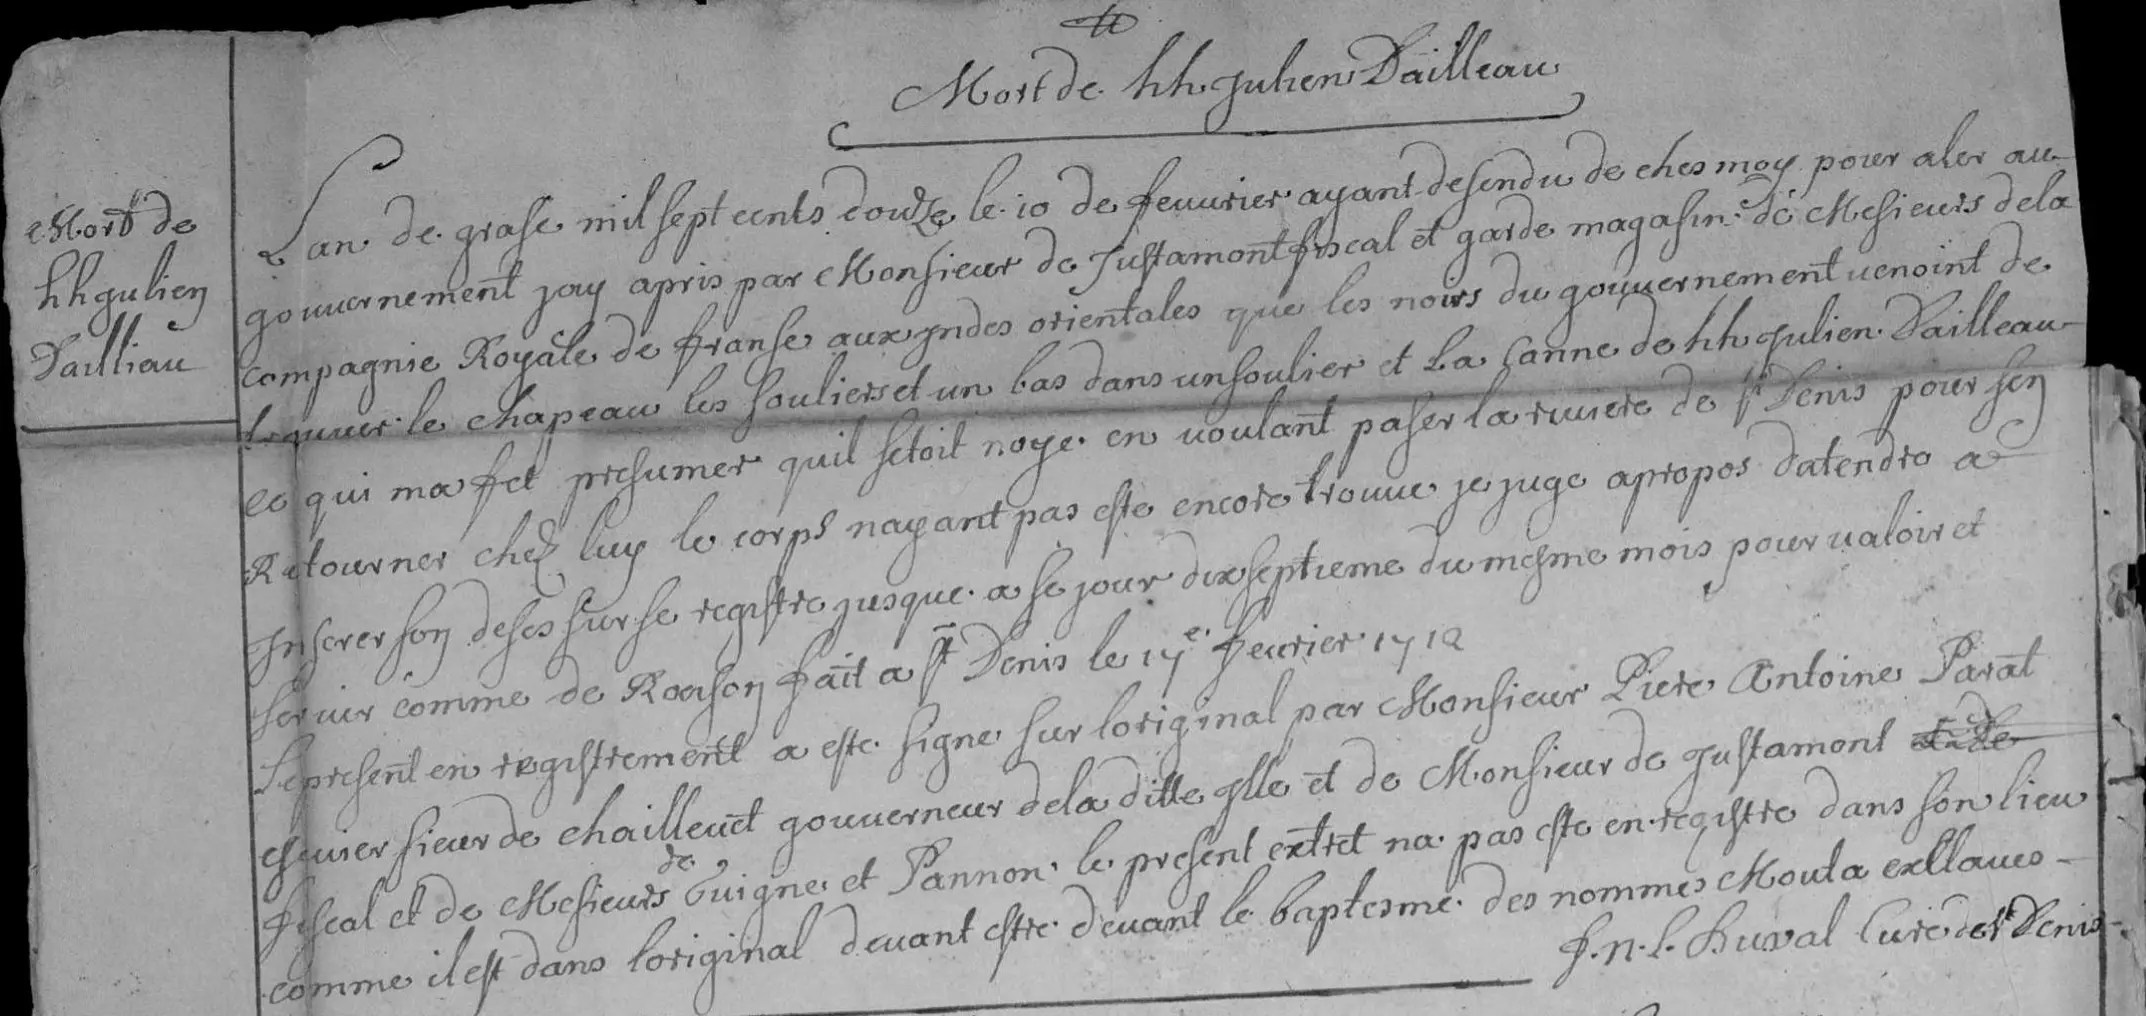 Mort de hh Julien Dailleau
Mort de
hh Julien
Dailliau
Lan de grase mil sept cents douze le 10 de feuurier ayant desendu de ches moy pour aler au
gouuernement jay apris par Monsieur de Justamont fiscal et garde magasin de Mesieurs de la
compagnie Royale de franse aux Jndes orientales que les noirs du gouuernement uenoint de
trouuer le chapeau les souliers et un bas dans un soulier et La Canne de hh Julien Dailleau
ce qui ma fet presumer quil setoit noye en uoulant paser la riuiere de st Denis pour sen
Retourner chez luy le corps nayant pas este encore trouue je juge apropos datendre a
Jnserer son deses sur se registre jusque a se jour dix septieme du mesme mois pour ualoir et
seruir comme de Raison fait a st Denis le 17e feurier 1712
Le present en registrement a este signe sur loriginal par Monsieur Piere Antoine Parat
escuier sieur de chailleuet gouuerneur de la ditte Jlle et de Monsieur de Justamont
fiscal et de Mesieurs de Guigne et Pannon le present extret na pas este en registre dans son lieu
comme il est dans loriginal deuant estre deuant le baptesme des nommes Mouta exllaues
f. n. l. Duual Cure de st Denis